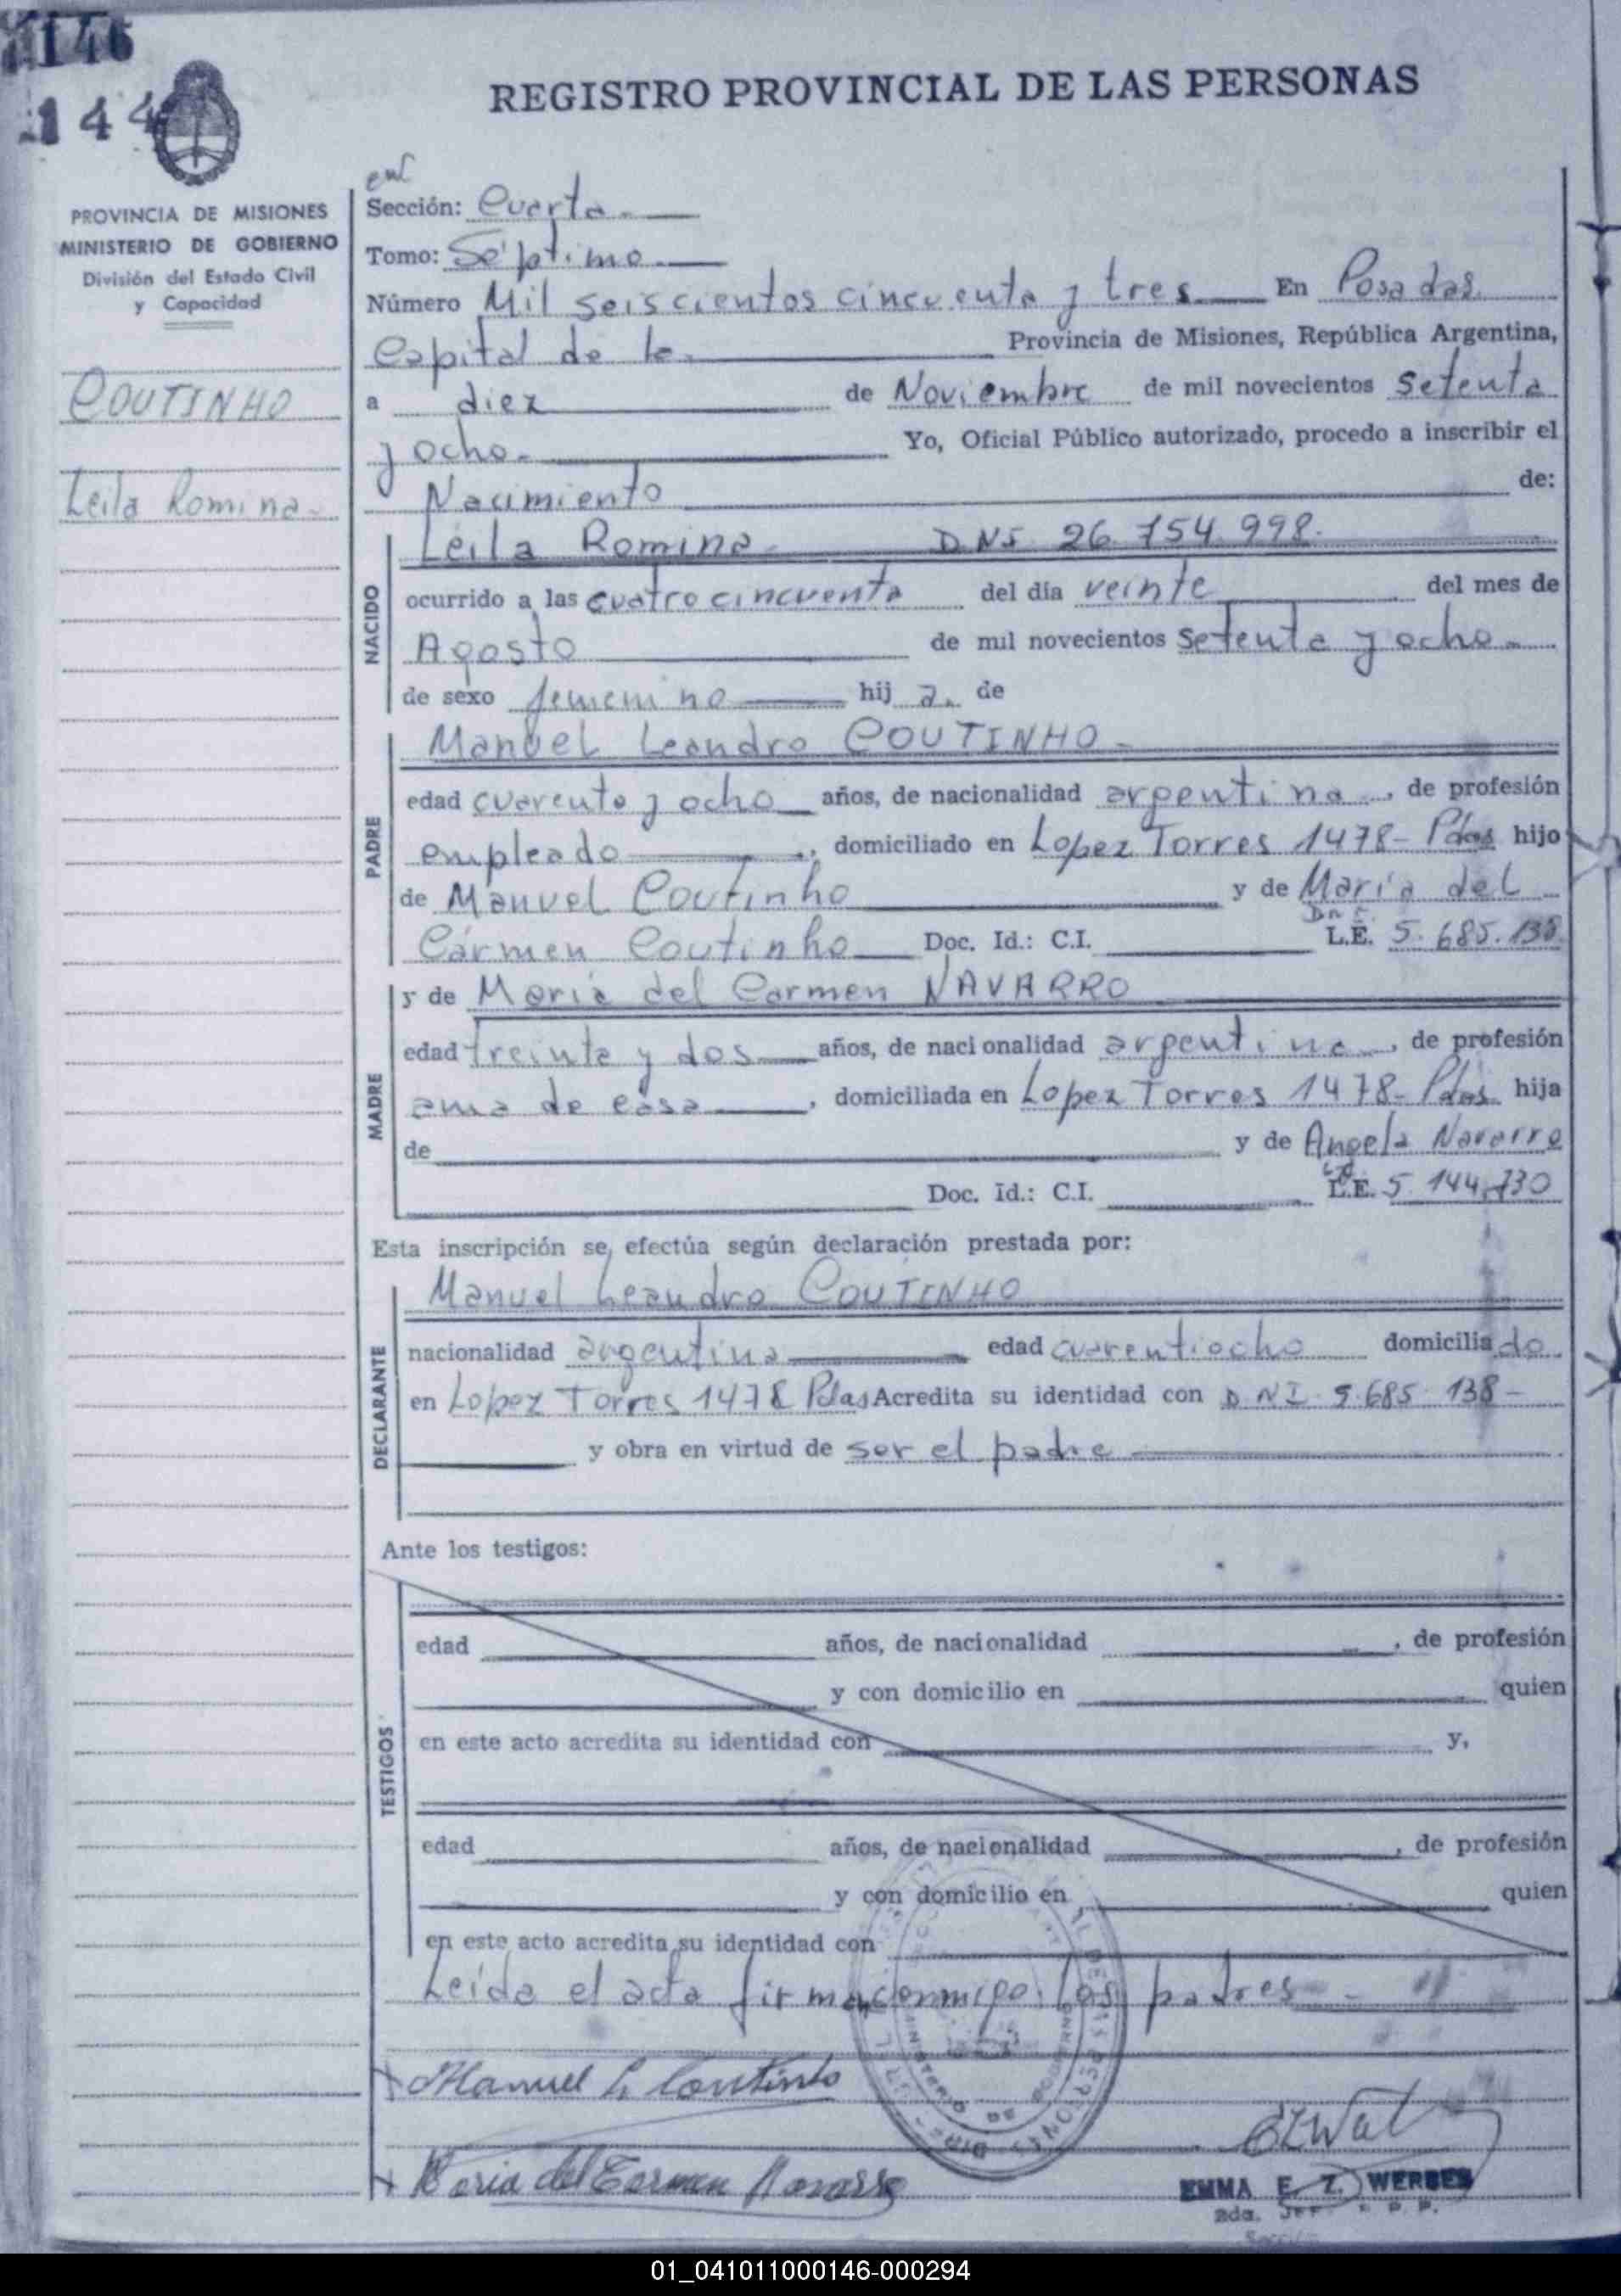 146
144
REGISTRO PROVINCIAL DE LAS PERSONAS
PROVINCIA DE MISIONES
MINISTERIO DE GOBIERNO
División del Estado Civil
y Capacidad
COUTINHO
Leila Romina.
Sección: Cuarta.
Tomo: Séptimo
Número Mil seiscientos cincuenta y tres En Posadas.
Capital de la Provincia de Misiones, República Argentina,
a diez de Noviembre de mil novecientos setenta
y ocho. Yo, Oficial Público autorizado, procedo a inscribir el
Nacimiento de:
NACIDO
Leila Romina DNI 26.754.998.
ocurrido a las cuatro cincuenta del día veinte del mes de
Agosto de mil novecientos setenta y ocho
de sexo femenino hij a. de
PADRE
Manuel Leandro COUTINHO
edad cuarenta y ocho años, de nacionalidad argentina, de profesión
empleado, domiciliado en Lopez Torres 1478- Pdas hijo
de Manuel Coutinho y de María del
Cármen Coutinho Doc. Id.: C.I. L.E. 5.685.138
MADRE
y de María del Carmen NAVARRO
edad treinta y dos años, de nacionalidad argentina, de profesión
ama de casa, domiciliada en Lopez Torres 1478- Pdas hija
de y de Angela Navarro
Doc. Id.: C.I. L.E. 5.144.730
Esta inscripción se efectúa según declaración prestada por:
DECLARANTE
Manuel Leandro COUTINHO
nacionalidad argentina edad cuarentiocho domicilia do
en Lopez Torres 1478 Pdas Acredita su identidad con DNI 5.685.138-
y obra en virtud de ser el padre
Ante los testigos:
TESTIGOS
edad años, de nacionalidad , de profesión
y con domicilio en quien
en este acto acredita su identidad con y,
edad años, de nacionalidad , de profesión
y con domicilio en quien
en este acto acredita su identidad con
Leída el acta firman conmigo los padres
Manuel L. Coutinho
María del Carmen Navarro
EMMA E. Z. WERBES
2da. JEF
01_041011000146-000294